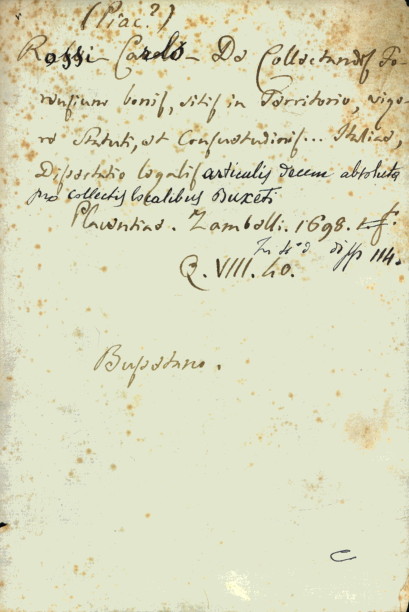 (Piac.?)
Rossi Carlo - De Collectandis Fo-
rensium bonis, sitis in Territorio, vigo-
re Statuti, et Consuetudinis... Italiae,
Disputatio legalis articulis decem absoluta
pro collectis localibus Buxeti
Placentiae. Zambelli. 1698.
In 4° di pp 114.
Q. VIII. 40.
Bussetano.
C